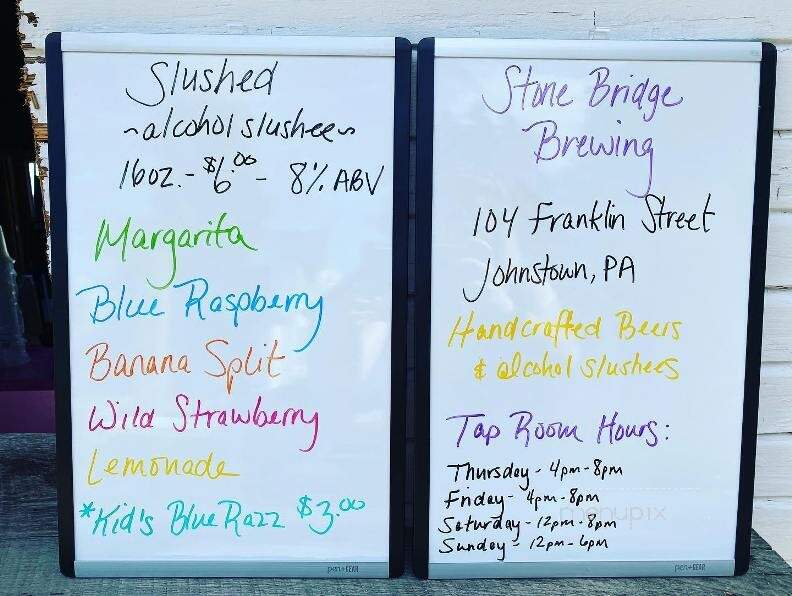 Slushed
~alcohol slushee~
16oz. - $6.00 - 8% ABV
Margarita
Blue Raspberry
Banana Split
Wild Strawberry
Lemonade
*Kid's Blue Razz $3.00
pen+GEAR
Stone Bridge
Brewing
104 Franklin Street
Johnstown, PA
Handcrafted Beers
& alcohol slushees
Tap Room Hours:
Thursday - 4pm - 8pm
Friday - 4pm - 8pm
Saturday - 12pm - 8pm
Sunday - 12pm - 6pm
menupix
pen+GEAR